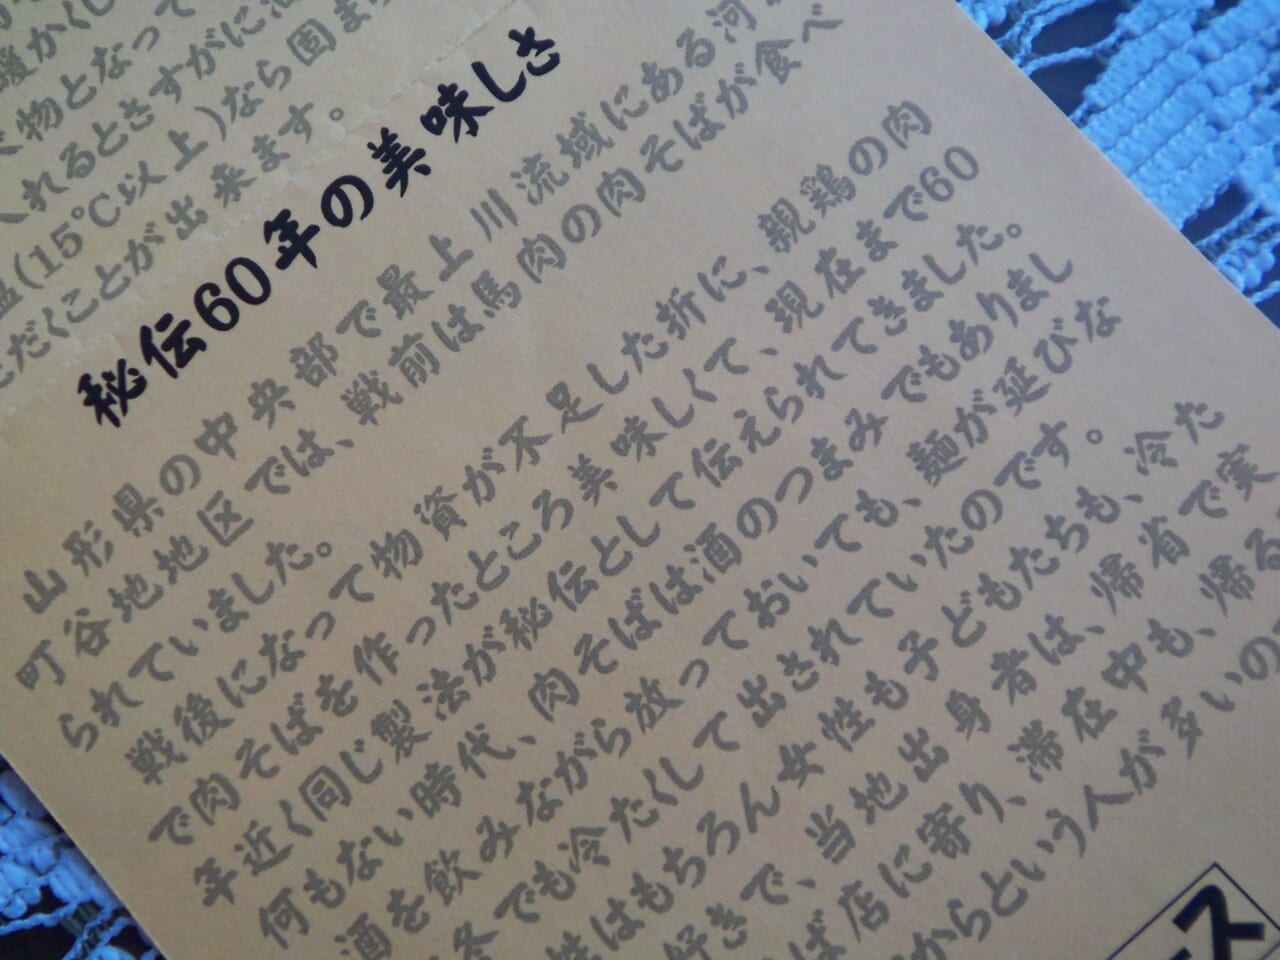 暖かくし
物となって
入れるとさすがに
(15℃以上)なら固ま
ただくことが出来ます。
秘伝60年の美味しさ
山形県の中央部で最上川流域にある河
町谷地地区では、戦前は馬肉の肉そばが食べ
られていました。
戦後になって物資が不足した折に、親鶏の肉
で肉そばを作ったところ美味しくて、現在まで60
年近く同じ製法が秘伝として伝えられてきました。
何もない時代、肉そばは酒のつまみでもありまし
酒を飲みながら放っておいても、麺が延びな
冬でも冷たくして出されていたのです。
性はもちろん女性も子どもたちも、冷た
好きで、当地出身者は、帰省で実
ば店に寄り、滞在中も、帰る
からという人が多いの
ス